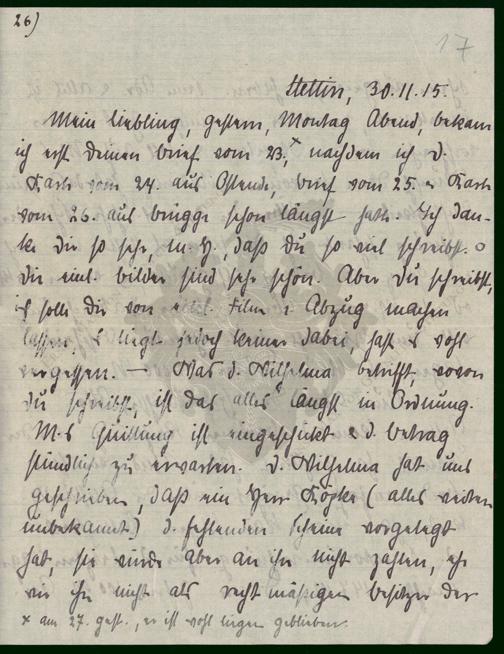 26)
17
Stettin, 30.11.15.
Mein Liebling, gestern, Montag Abend, bekam
ich erst deinen Brief vom 23.,x nachdem ich d.
Karte vom 24. aus Ostende, Brief vom 25. u Karte
vom 26. aus Brügge schon längst hatte. Ich dan-
ke dir so sehr, m. H., daß du so viel schreibst.
Die einl. Bilder sind sehr schön. Aber du schreibst,
ich solle dir von einl. Film 1 Abzug machen
lassen, es liegt jedoch keiner dabei, hast es wohl
vergessen. — Was d. Wilhelma betrifft, wovon
du schreibst, ist das alles längst in Ordnung.
M-s Quittung ist eingeschickt u d. Betrag
stündlich zu erwarten. d. Wilhelma hat uns
geschrieben, daß ein Herr Köpke (alles weitere
unbekannt) d. fehlenden Scheine vorgelegt
hat, sie würde aber an ihn nicht zahlen, ehe
wir ihn nicht als rechtmäßigen Besitzer der
x am 27. gest., er ist wohl liegen geblieben.